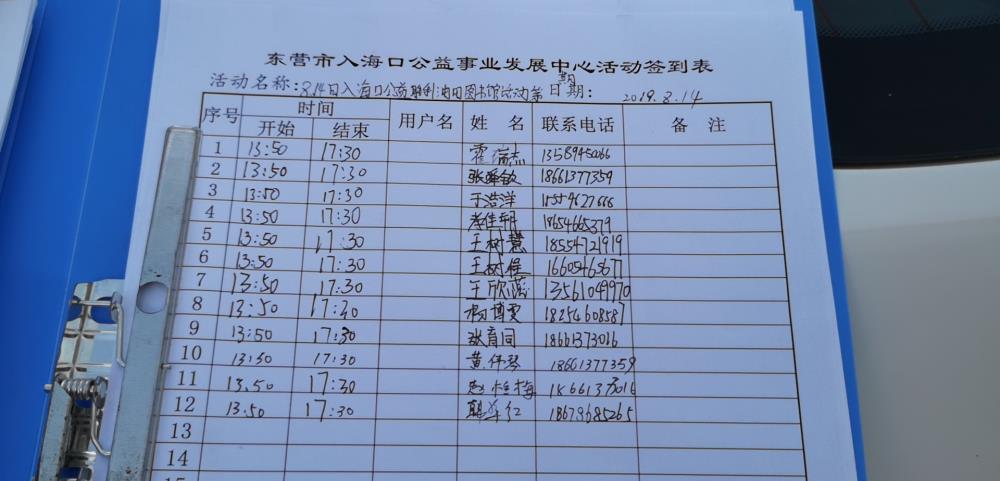 东营市入海口公益事业发展中心活动签到表
活动名称:8.14日入海口公益胜利油田图书馆活动第 期 日期: 2019.8.14
序号 时间 用户名 姓 名 联系电话 备 注
开始 结束
1 13:50 17:30 霍瑞杰 13589450066
2 13:50 17:30 张 18661377359
3 13:50 17:30 于浩洋
4 13:50 17:30 李佳明 18654665379
5 13:50 17:30 王树慧 18554721919
6 13:50 17:30 王树 16605465677
7 13:50 17:30 王欣蕊 13561049970
8 13:50 17:30 杨博雯 18254608587
9 13:50 17:30 张育同 18661373016
10 13:50 17:30 黄伟琴 18661377359
11 13:50 17:30 赵桂梅 18661373016
12 13:50 17:30 18679685265
13
14
15